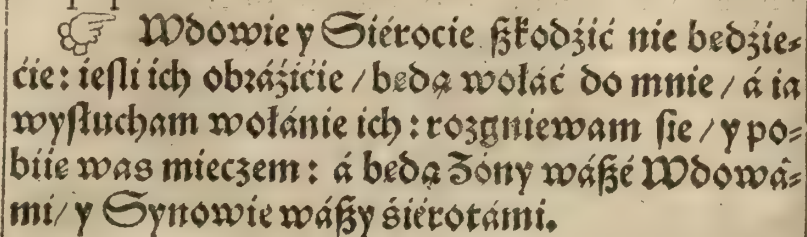 ☞ Wdowie y Siérocie ſzkodźić nie będzie⸗
ćie: ieſli ich obráźićie / będą wołáć do mnie / á ia
wyſłucham wołánie ich: rozgniewam ſie / y po⸗
biię was mieczem: á będą Zony wáßé Wdowá⸗
mi / y Synowie wáßy śiérotámi.